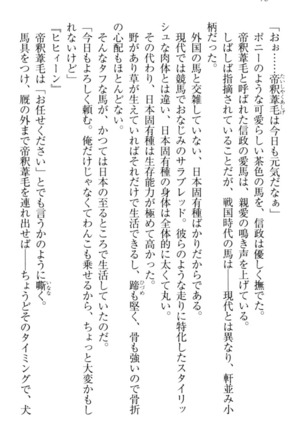 「おぉ……帝釈葦毛は今日も元気だなぁ」
ポニーのような可愛らしい茶色の馬を、信政は優しく撫でた。
帝釈葦毛と呼ばれた信政の愛馬は、親愛の鳴き声を上げている。
しばしば指摘されていることだが、戦国時代の馬は――現代とは異なり、軒並み小
柄だった。
外国の馬と交雑していない、日本固有種ばかりだからである。
現代では競馬でおなじみのサラブレッド。彼らのような走りに特化したスタイリッ
シュな肉体とは違い、日本固有種の身体は全体的に太くて丸い。
その代わり、日本固有種は生存能力が極めて高かった。
野があり草が生えていればそれだけで生活できるし、蹄も堅く、骨も強いので骨折
の心配もほとんどない。
そんなタフな馬が、かつては日本の至るところで生活していたのだ。
「今日もよろしく頼む。俺だけじゃなくてわんこも乗せるから、ちょっと大変かもし
れないけど」
『ヒヒィーン』
帝釈葦毛は「お任せください」とでも言うかのように嘶く。
馬具をつけ、厩の外まで帝釈葦毛を連れ出せば――ちょうどそのタイミングで、犬